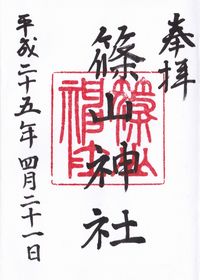 奉拝
篠山神社
篠山神社
平成二十五年四月二十一日